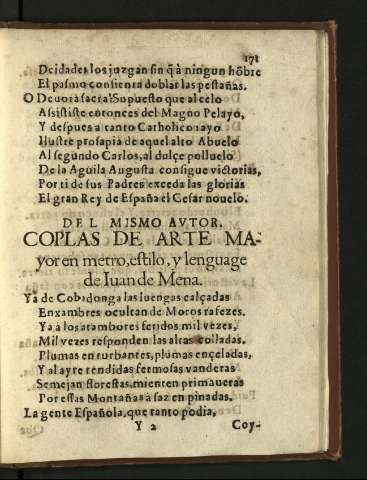 171
Deidades los juzgan sin q̃ à ningun hõbre
El pasmo consienta doblar las pestañas.
O Devota sacra! Supuesto que al celo
Assististe entonces del Magno Pelayo,
Y despues a tanto Catholico rayo
Ilustre prosapia de aquel alto Abuelo
Al segundo Carlos, al dulçe polluelo
De la Aguila Augusta consigue victorias,
Por ti de sus Padres exceda las glorias
El gran Rey de España el Cesar novelo.
DEL MISMO AVTOR.
COPLAS DE ARTE MA-
yor en metro, estilo, y lenguage
de Iuan de Mena.
Ya de Cobadonga las luengas calçadas
Enxambres ocultan de Moros rafezes.
Ya à los atambores feridos mil vezes,
Mil vezes responden las altas colladas.
Plumas en turbantes, plumas ençeladas,
Y al ayre tendidas fermosas vanderas
Semejan florestas, mienten primaueras
Por estas Montañas à faz en pinadas.
La gente Española, que tanto podia,
Y 2 Coy-